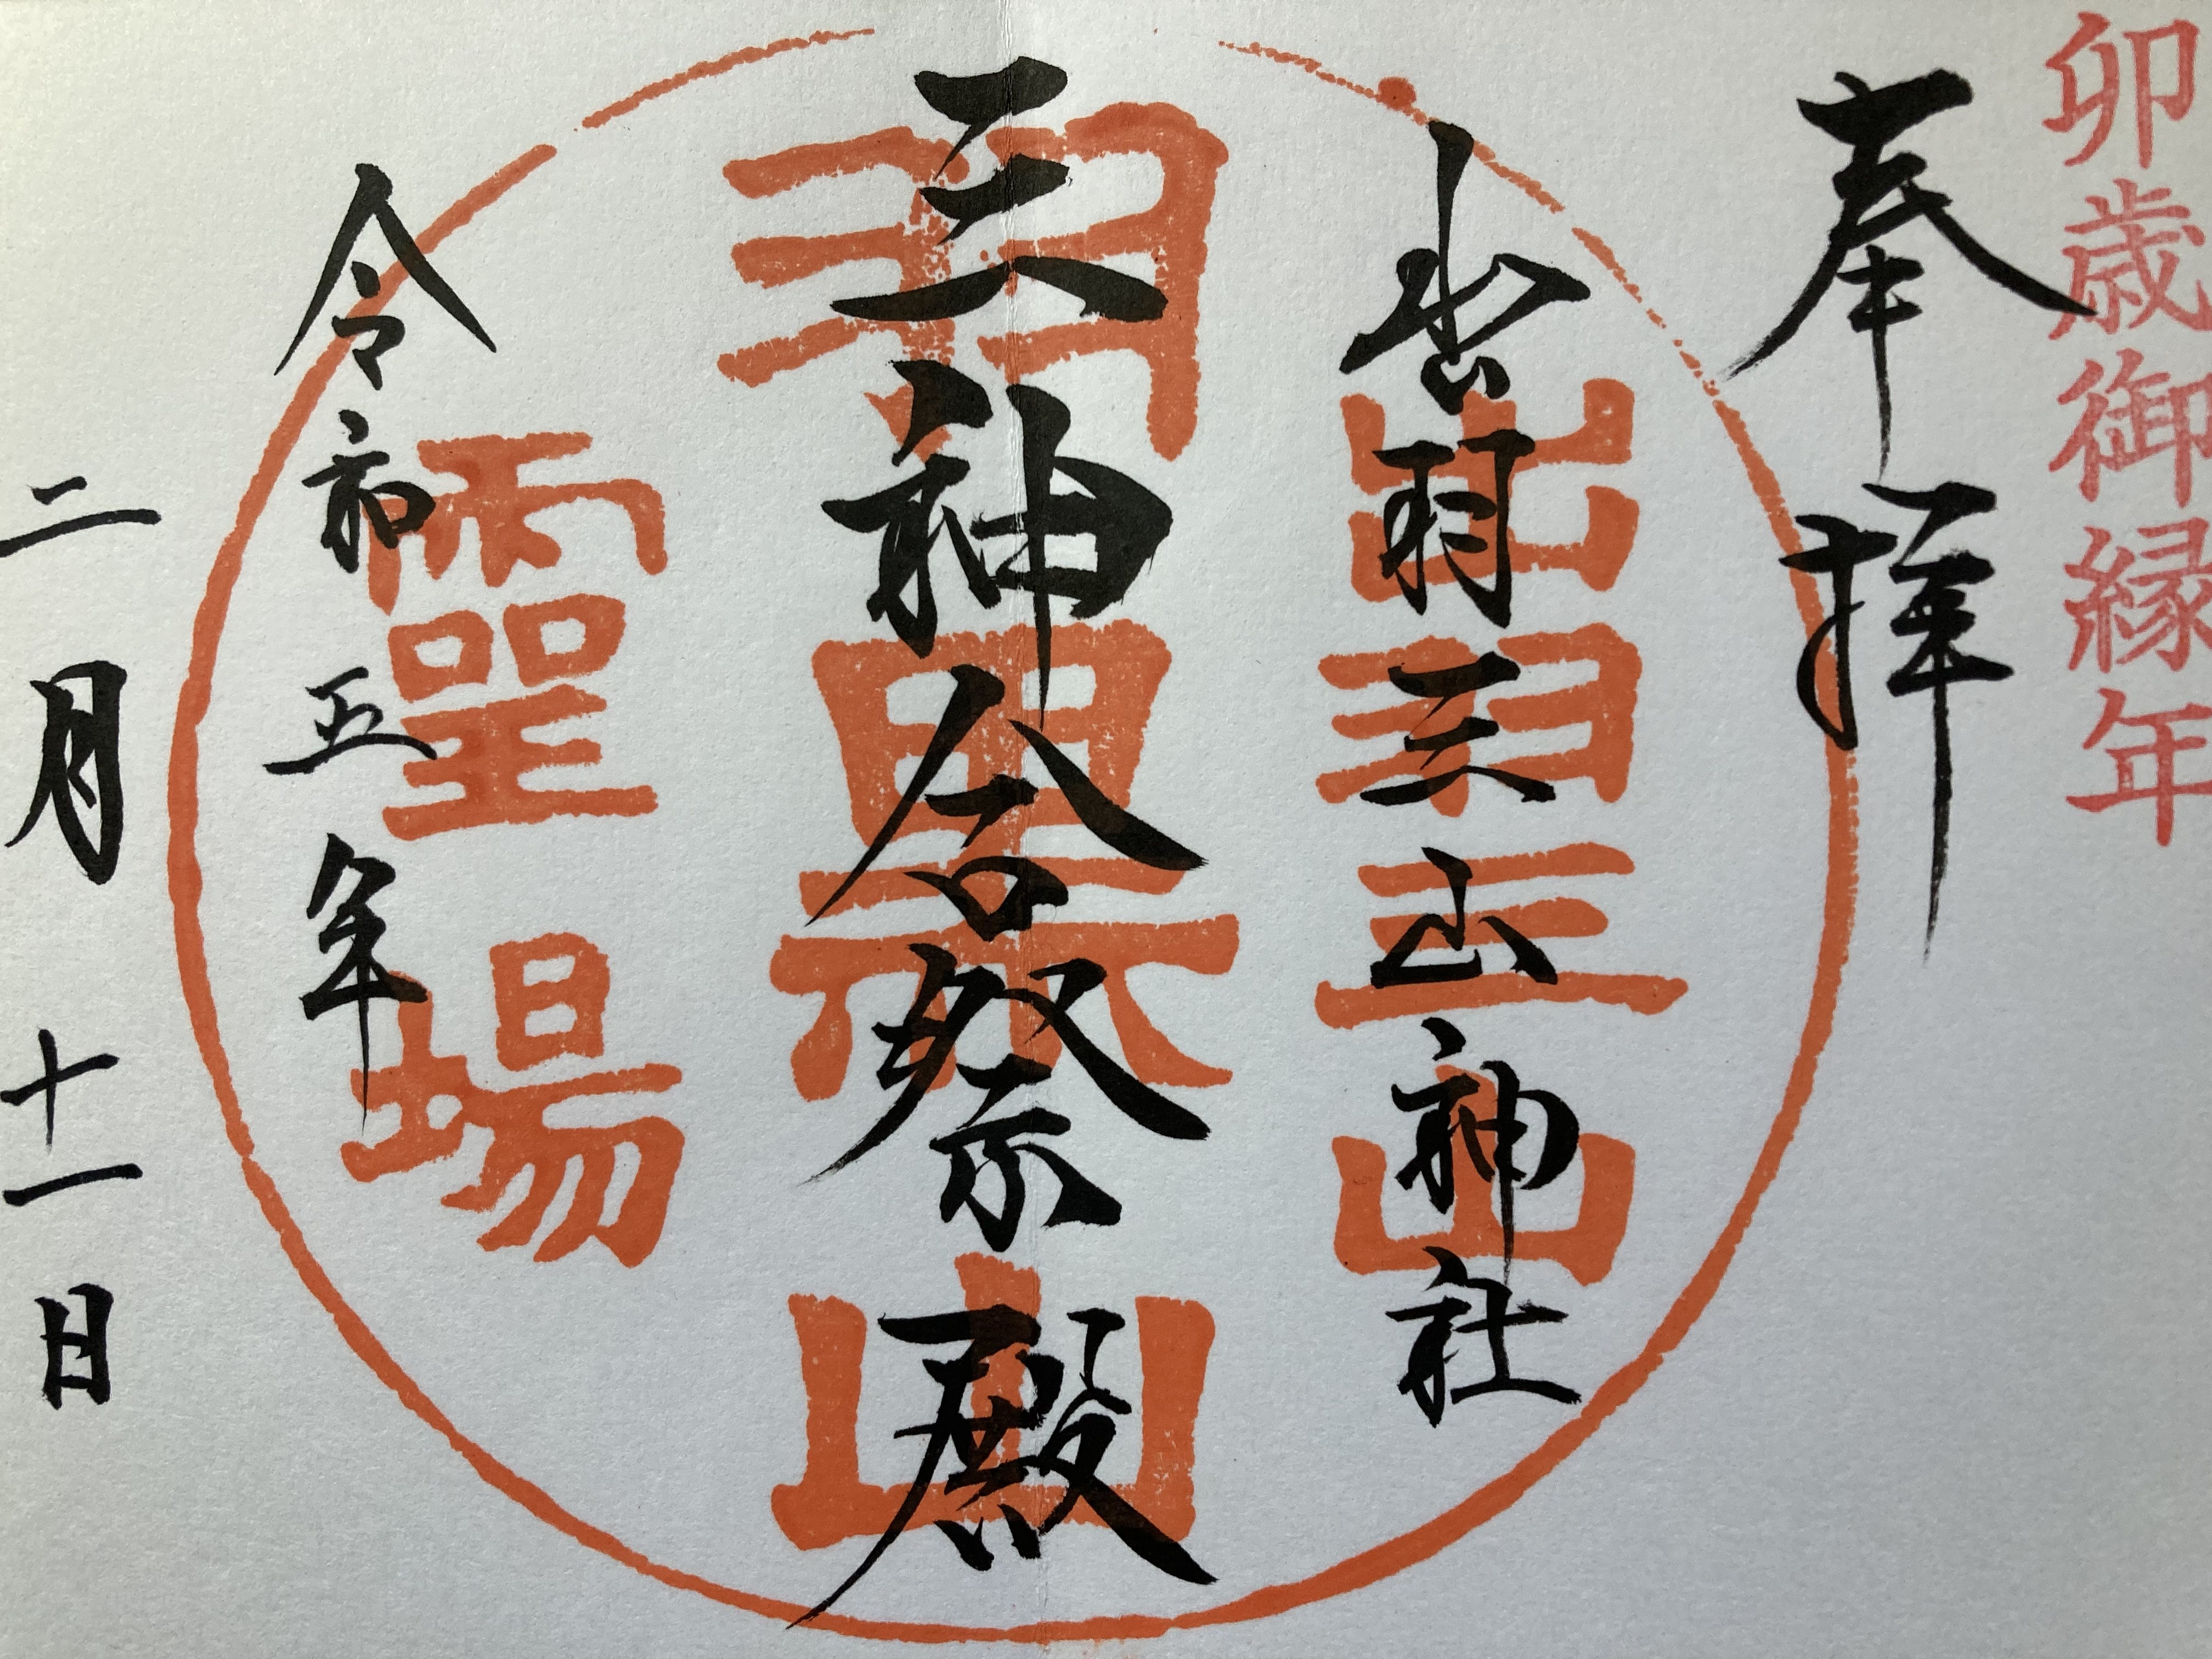 卯歳御縁年
奉拝
出羽三山神社
三神合祭殿
令和五年
二月十一日
出羽三山
羽黒山
霊場